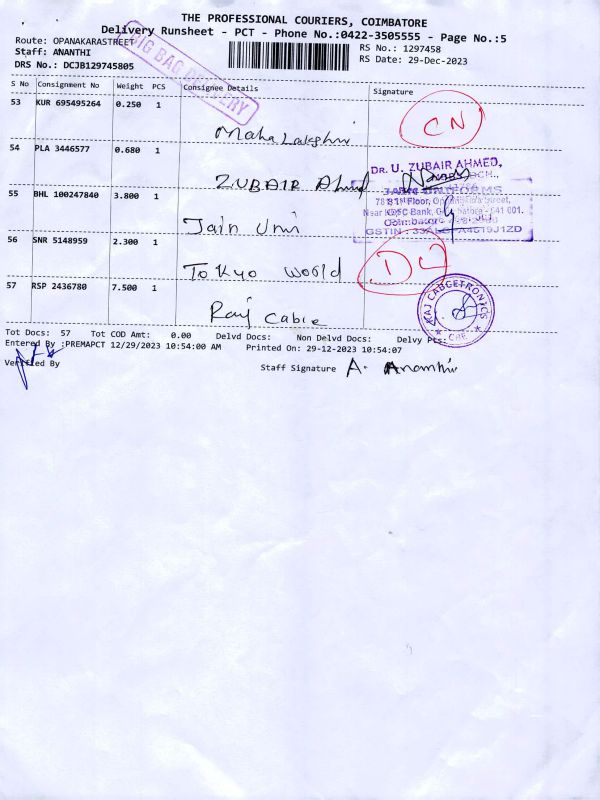 THE PROFESSIONAL COURIERS, COIMBATORE
Delivery Runsheet - PCT - Phone No.:0422-3505555 - Page No.:5
Route: OPANAKARASTREET
RS No.: 1297458
Staff: ANANTHI
RS Date: 29-Dec-2023
DRS No.: DCJB129745805
BIG BAG DELIVERY
S No Consignment No Weight PCS Consignee Details Signature
53 KUR 695495264 0.250 1
Maha Lakshmi CN
54 PLA 3446577 0.680 1
DR. U. ZUBAIR AHMED,
ZUBAIR Ahmd
55 BHL 100247840 3.800 1
JAIN UNIFORMS
Floor,
Street,
Near HDFC Bank, 641 001.
Jain Uni
GSTIN :
56 SNR 5148959 2.300 1
Tokyo World
57 RSP 2436780 7.500 1
RAJ CABGETRONICS
CBE
Raj Cable
Tot Docs: 57 Tot COD Amt: 0.00 Delvd Docs: Non Delvd Docs: Delvy Pts:
Entered By :PREMAPCT 12/29/2023 10:54:00 AM Printed On: 29-12-2023 10:54:07
Verified By
Staff Signature A. Ananthi